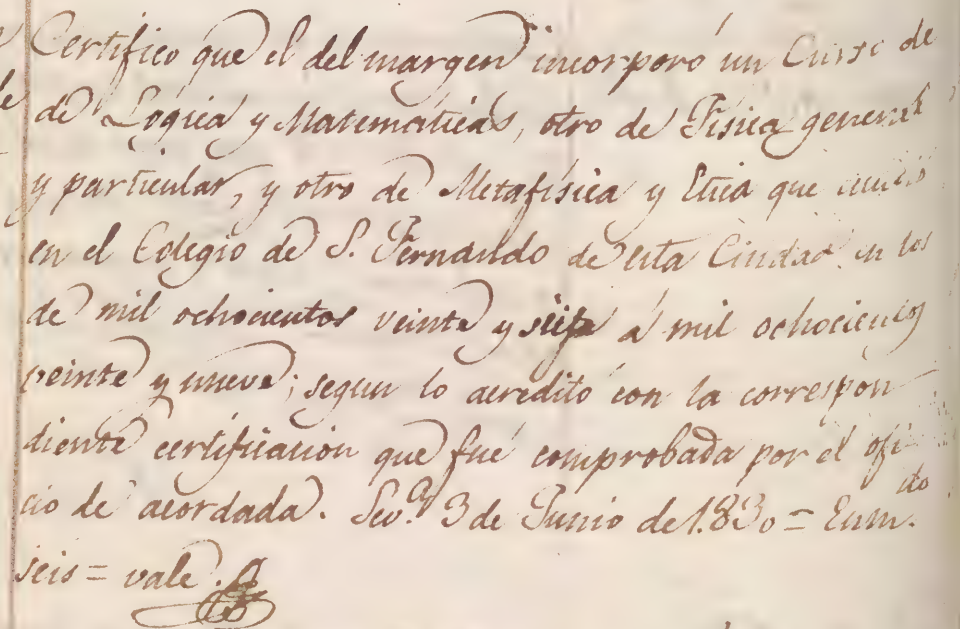 Certifico que el del margen incorporó un Curso de
de Lógica y Matemáticas, otro de Física general
y particular, y otro de Metafísica y Etica que
en el Colegio de S. Fernando de esta Ciudad en los
de mil ochocientos veinte y seis á mil ochocientos
veinte y nueve; segun lo acreditó con la correspon
diente certificacion que fué comprobada por el ofi
cio de acordada. Sev.ª 3 de Junio de 1.830 = Enm.do
seis = vale.